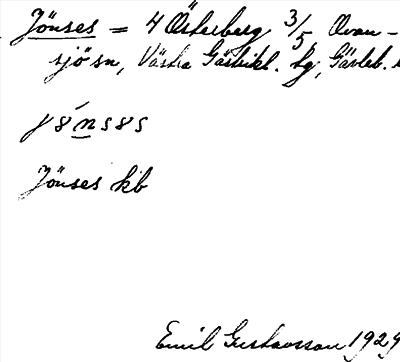 Jönses = 4 Österberg 3/5 Ovan-
sjö sn, Västra Gästrikl. tg, Gävleb. l
j8́ns8s
Jönses kb
Emil Gustavsson 1929